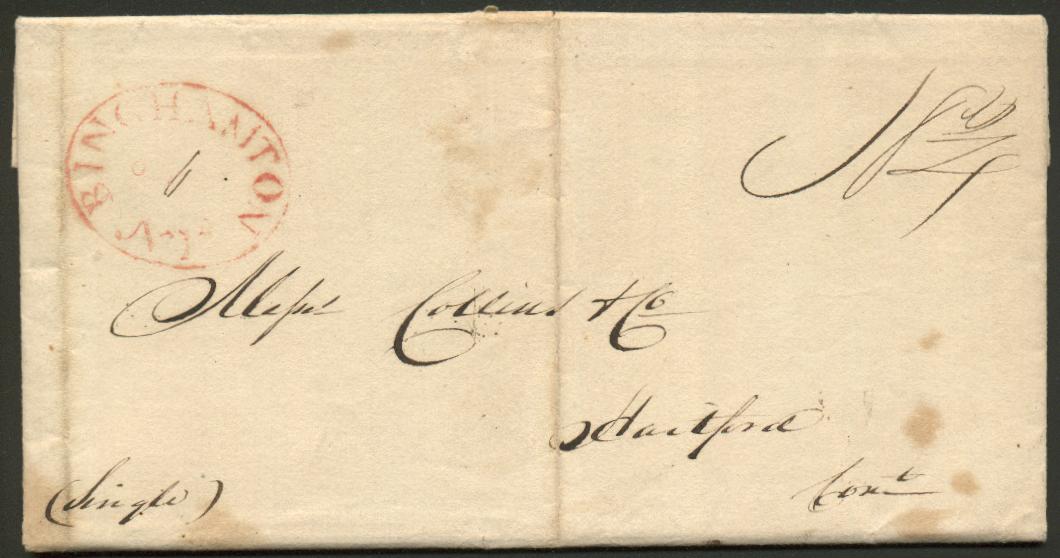 BINGHAMTON
6
Augt
18 3/4
Messrs Collins & Co
Hartford
Cont
(Single)